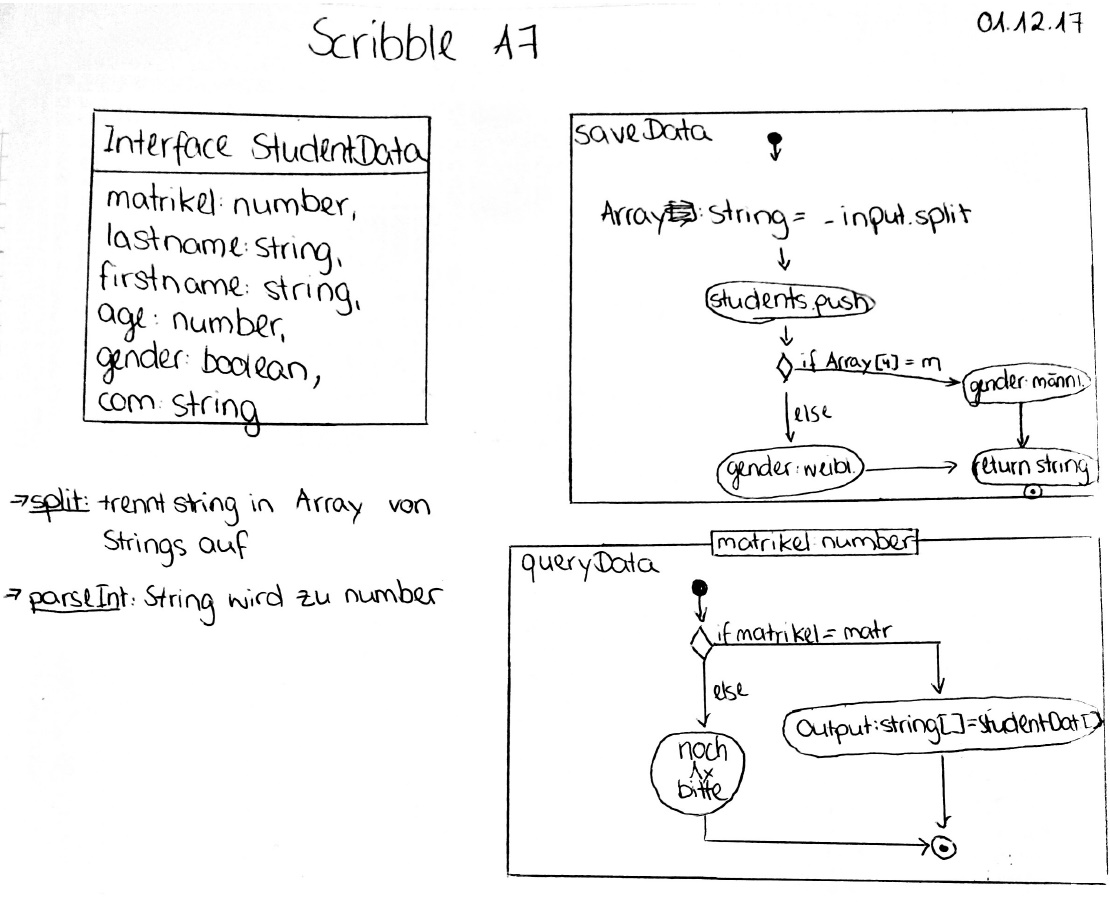 Scribble A7
01.12.17
Interface StudentData
matrikel: number,
lastname: string,
firstname: string,
age: number,
gender: boolean,
com: string
→ split: trennt string in Array von
Strings auf
→ parseInt: String wird zu number
saveData
Array: string = _input.split
students.push
if Array[4] = m
gender: männl.
else
gender: weibl.
return string
matrikel: number
queryData
if matrikel = matr
else
Output: string[] = StudentDat[]
noch
1x
bitte